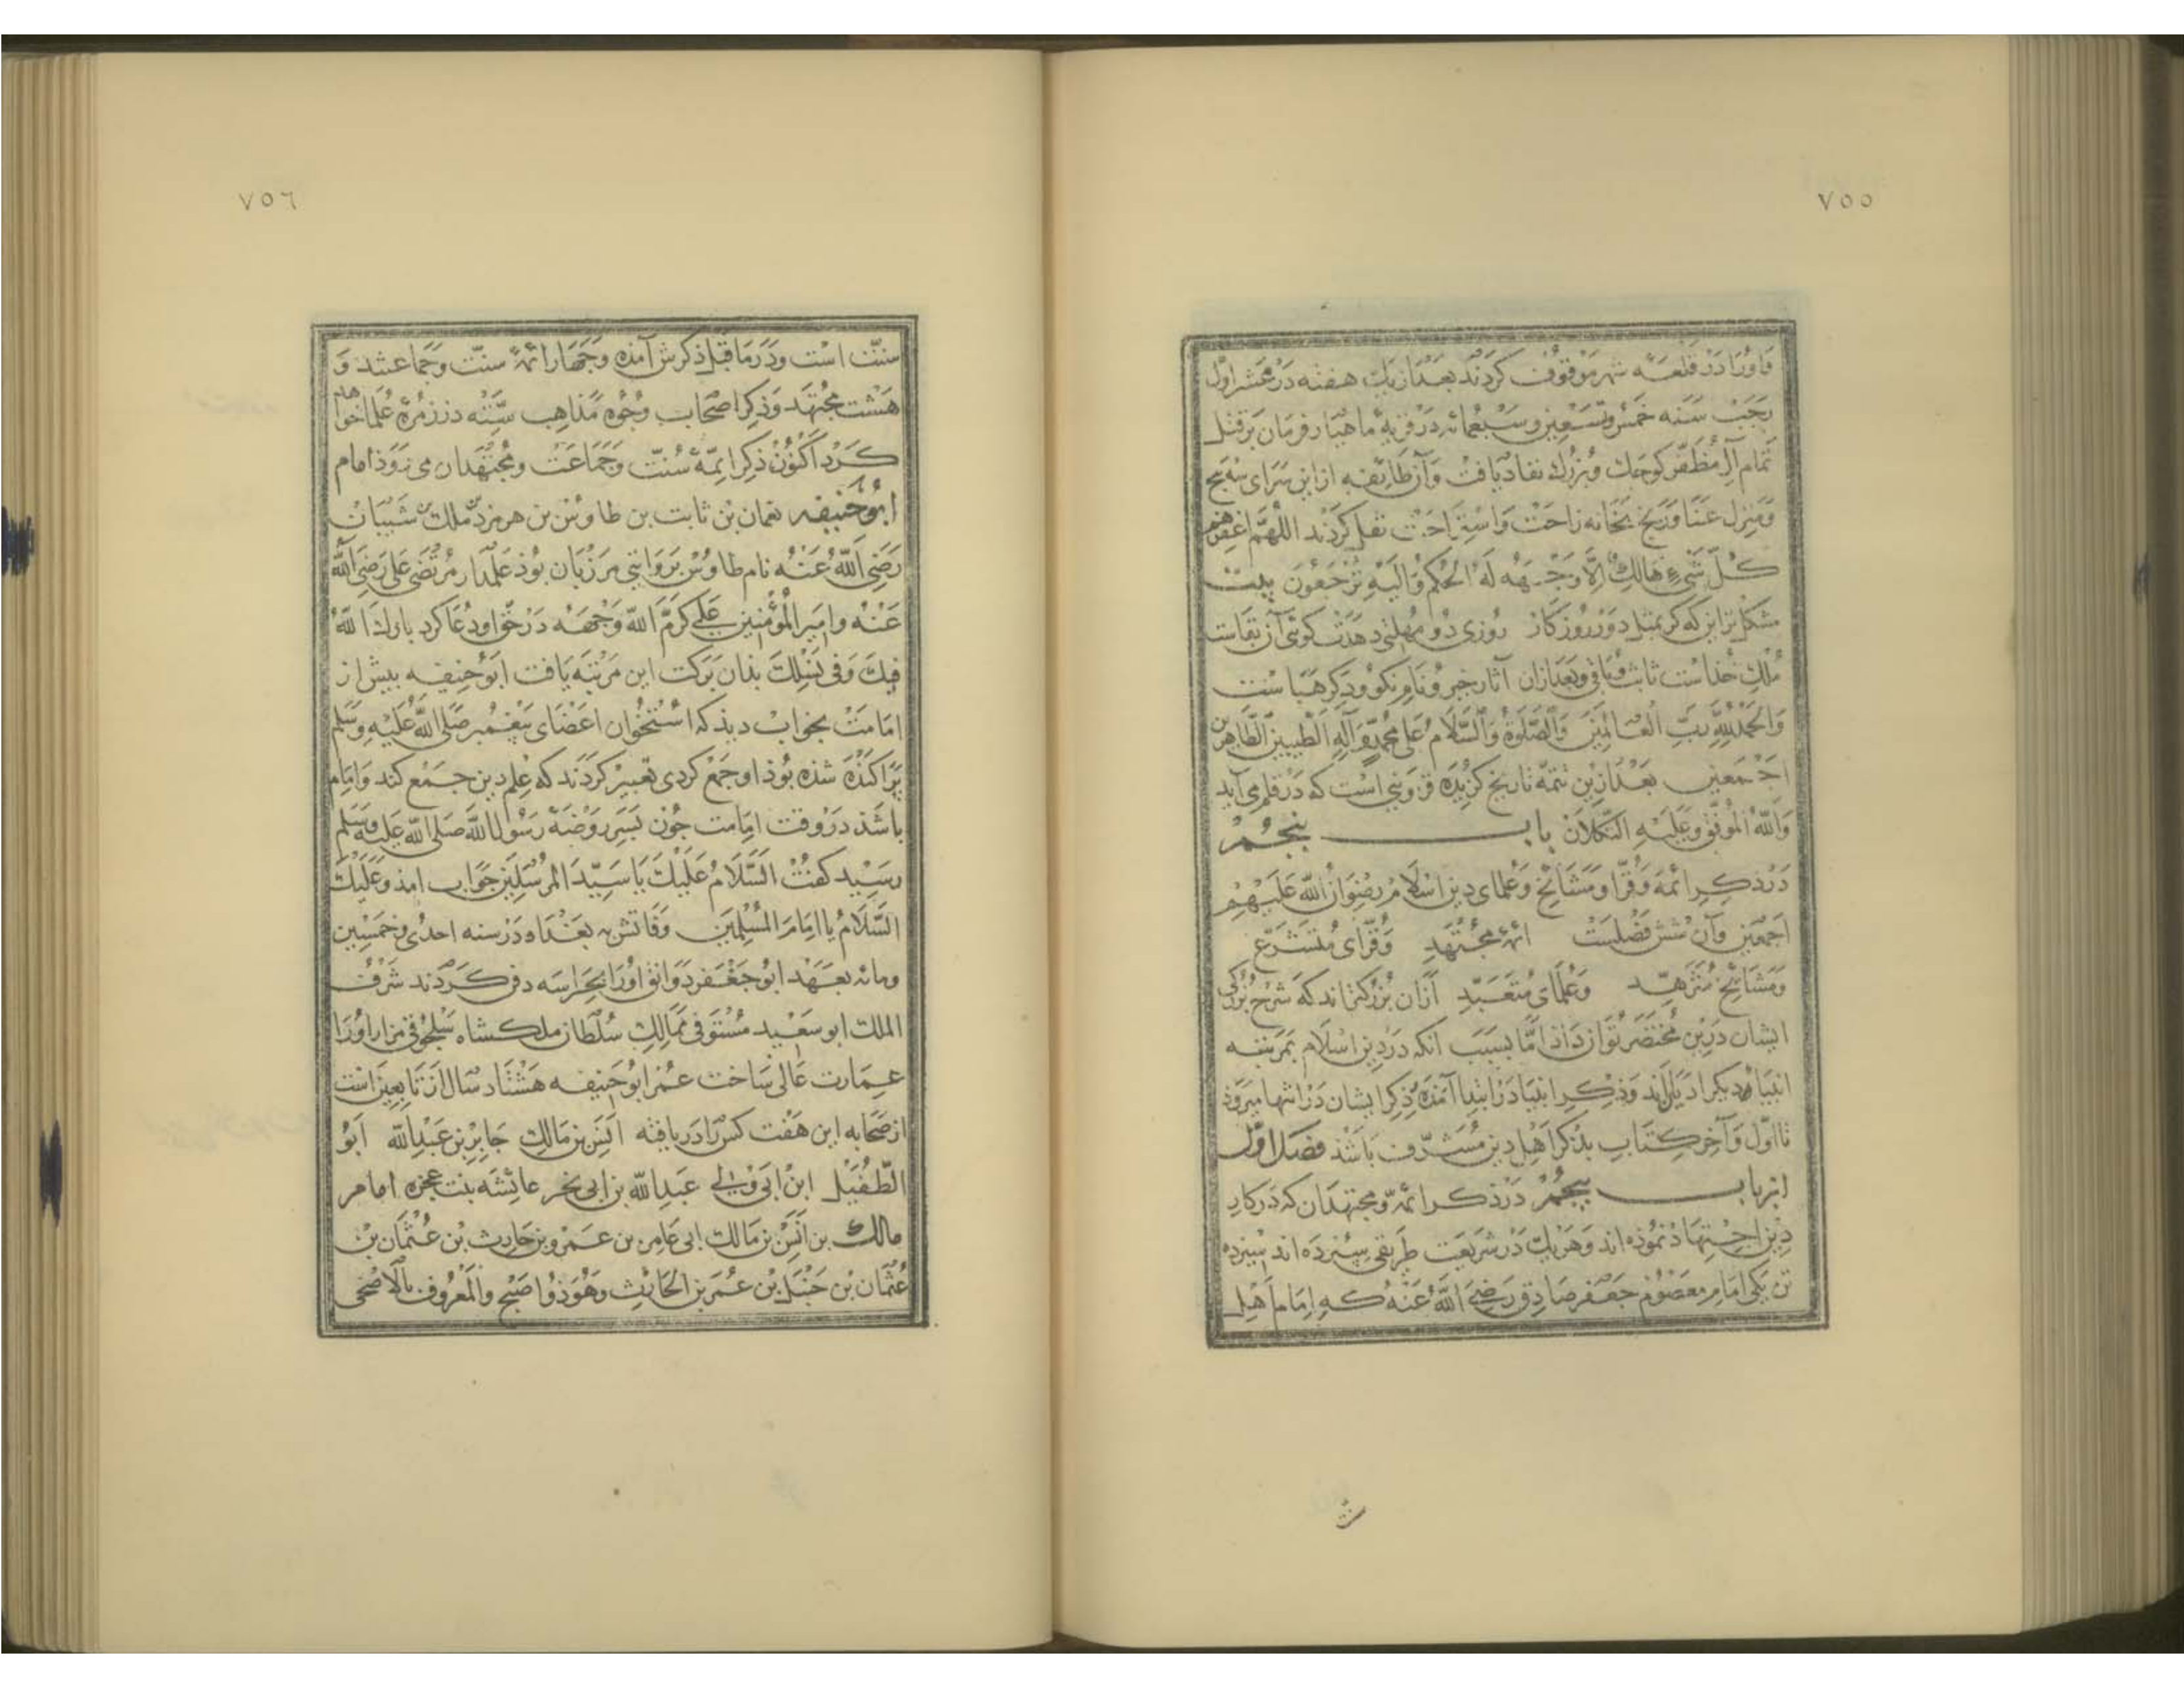 ٧٥٥
و او را در قلعه شهر موقوف کردند بعد از یک هفته در عشر اول
رجب سنه خمس وتسعین وسبعمائه در قریه ماهیار فرمان بر قتل
تمام آل مظفر کوجک وبزرک نفاد یافت وآن طایفه از این سرای سه پنج
ومنزل عنا ورنج بخانه راحت واستراحت نقل کردند اللهم اغفرهم
کل شیء هالک الا وجهه له الحکم والیه ترجعون بیت
مشکل تر این که کر بمثل دور روزکار روزی دو مهلتی دهدت کوئی آن بقاست
ملک خداست ثابت وباقی وبعد ازان آثار خیر ونام نکو وذکر هباست
والحمد لله رب العالمین والصلوة والسلام علی محمد وآله الطیبین الطاهرین
اجمعین بعد ازین تتمه تاریخ کزیده قزوینی است که در قلم می آید
والله الموفق وعلیه التکلان باب پنجم
در ذکر ائمه وقرا ومشائخ وعلمای دین اسلام رضوان الله علیهم
اجمعین وآن شش فصلست ائمه مجتهد وقرای متشرع
ومشائخ متزهد وعلمای متعبد ازان بزرکتراند که شرح بزرکی
ایشان درین مختصر توان داد اما بسبب آنکه در دین اسلام بمرتبه
انبیاء دیکر ادیان‌اند وذکر انبیا در ابتدا آمده ذکر ایشان در انتها میرود
تا اول وآخر کتاب بذکر اهل دین مشرف باشد فصل اول
از باب پنجم در ذکر ائمه ومجتهدان که در کار
دین اجتهاد نموده اند وهر یک در شریعت طریقی سپرده اند سیزده
تن یکی امام معصوم جعفر صادق رضی الله عنه که امام اهل
٧٥٦
سنت است ودر ما قبل ذکرش آمده وجهار ائمه سنت وجماعتند و
هشت مجتهد وذکر اصحاب وجوه مذاهب سته در زمره علما خواهد
کرد اکنون ذکر ایمه سنت وجماعت ومجتهدان می رود امام
ابو حنیفه نعمان بن ثابت بن طاوس بن هرمزد بن ملک بن شیبان
رضی الله عنه نام طاوس بروایتی مرزبان بود علمدار مرتضی علی رضی الله
عنه وامیر المؤمنین علی کرم الله وجهه در حق او دعا کرد بارک الله
فیک وفی نسلک بدان برکت این مرتبه یافت ابو حنیفه بیش از
امامت بخواب دید که استخوان اعضای پیغمبر صلی الله علیه وسلم
پراکنده شده بود او جمع کردی تعبیر کردند که علم دین جمع کند وامام
باشد در وقت امامت جون بسر روضه رسول الله صلی الله علیه وسلم
رسید کفت السلام علیک یا سید المرسلین جواب امد وعلیک
السلام یا امام المسلمین وفاتش به بغداد در سنه احدی وخمسین
ومائه بعهد ابو جعفر دوانق او را بحراسه دفن کردند شرف
الملک ابو سعید مستوفی ممالک سلطان ملکشاه سلجوقی مزار او را
عمارت عالی ساخت عمر ابو حنیفه هشتاد سال از تابعین است
از صحابه این هفت کس را دریافته انس بن مالک جابر بن عبد الله ابو
الطفیل ابن ابی وفی عبد الله بن ابی نحر عائشه بنت عجزه امام
مالک بن انس بن مالک ابی عامر بن عمرو بن حارث بن عثمان بن
عثمان بن حنبل بن عمر بن الحارث وهو ذو اصبح والمعروف بالاضحی